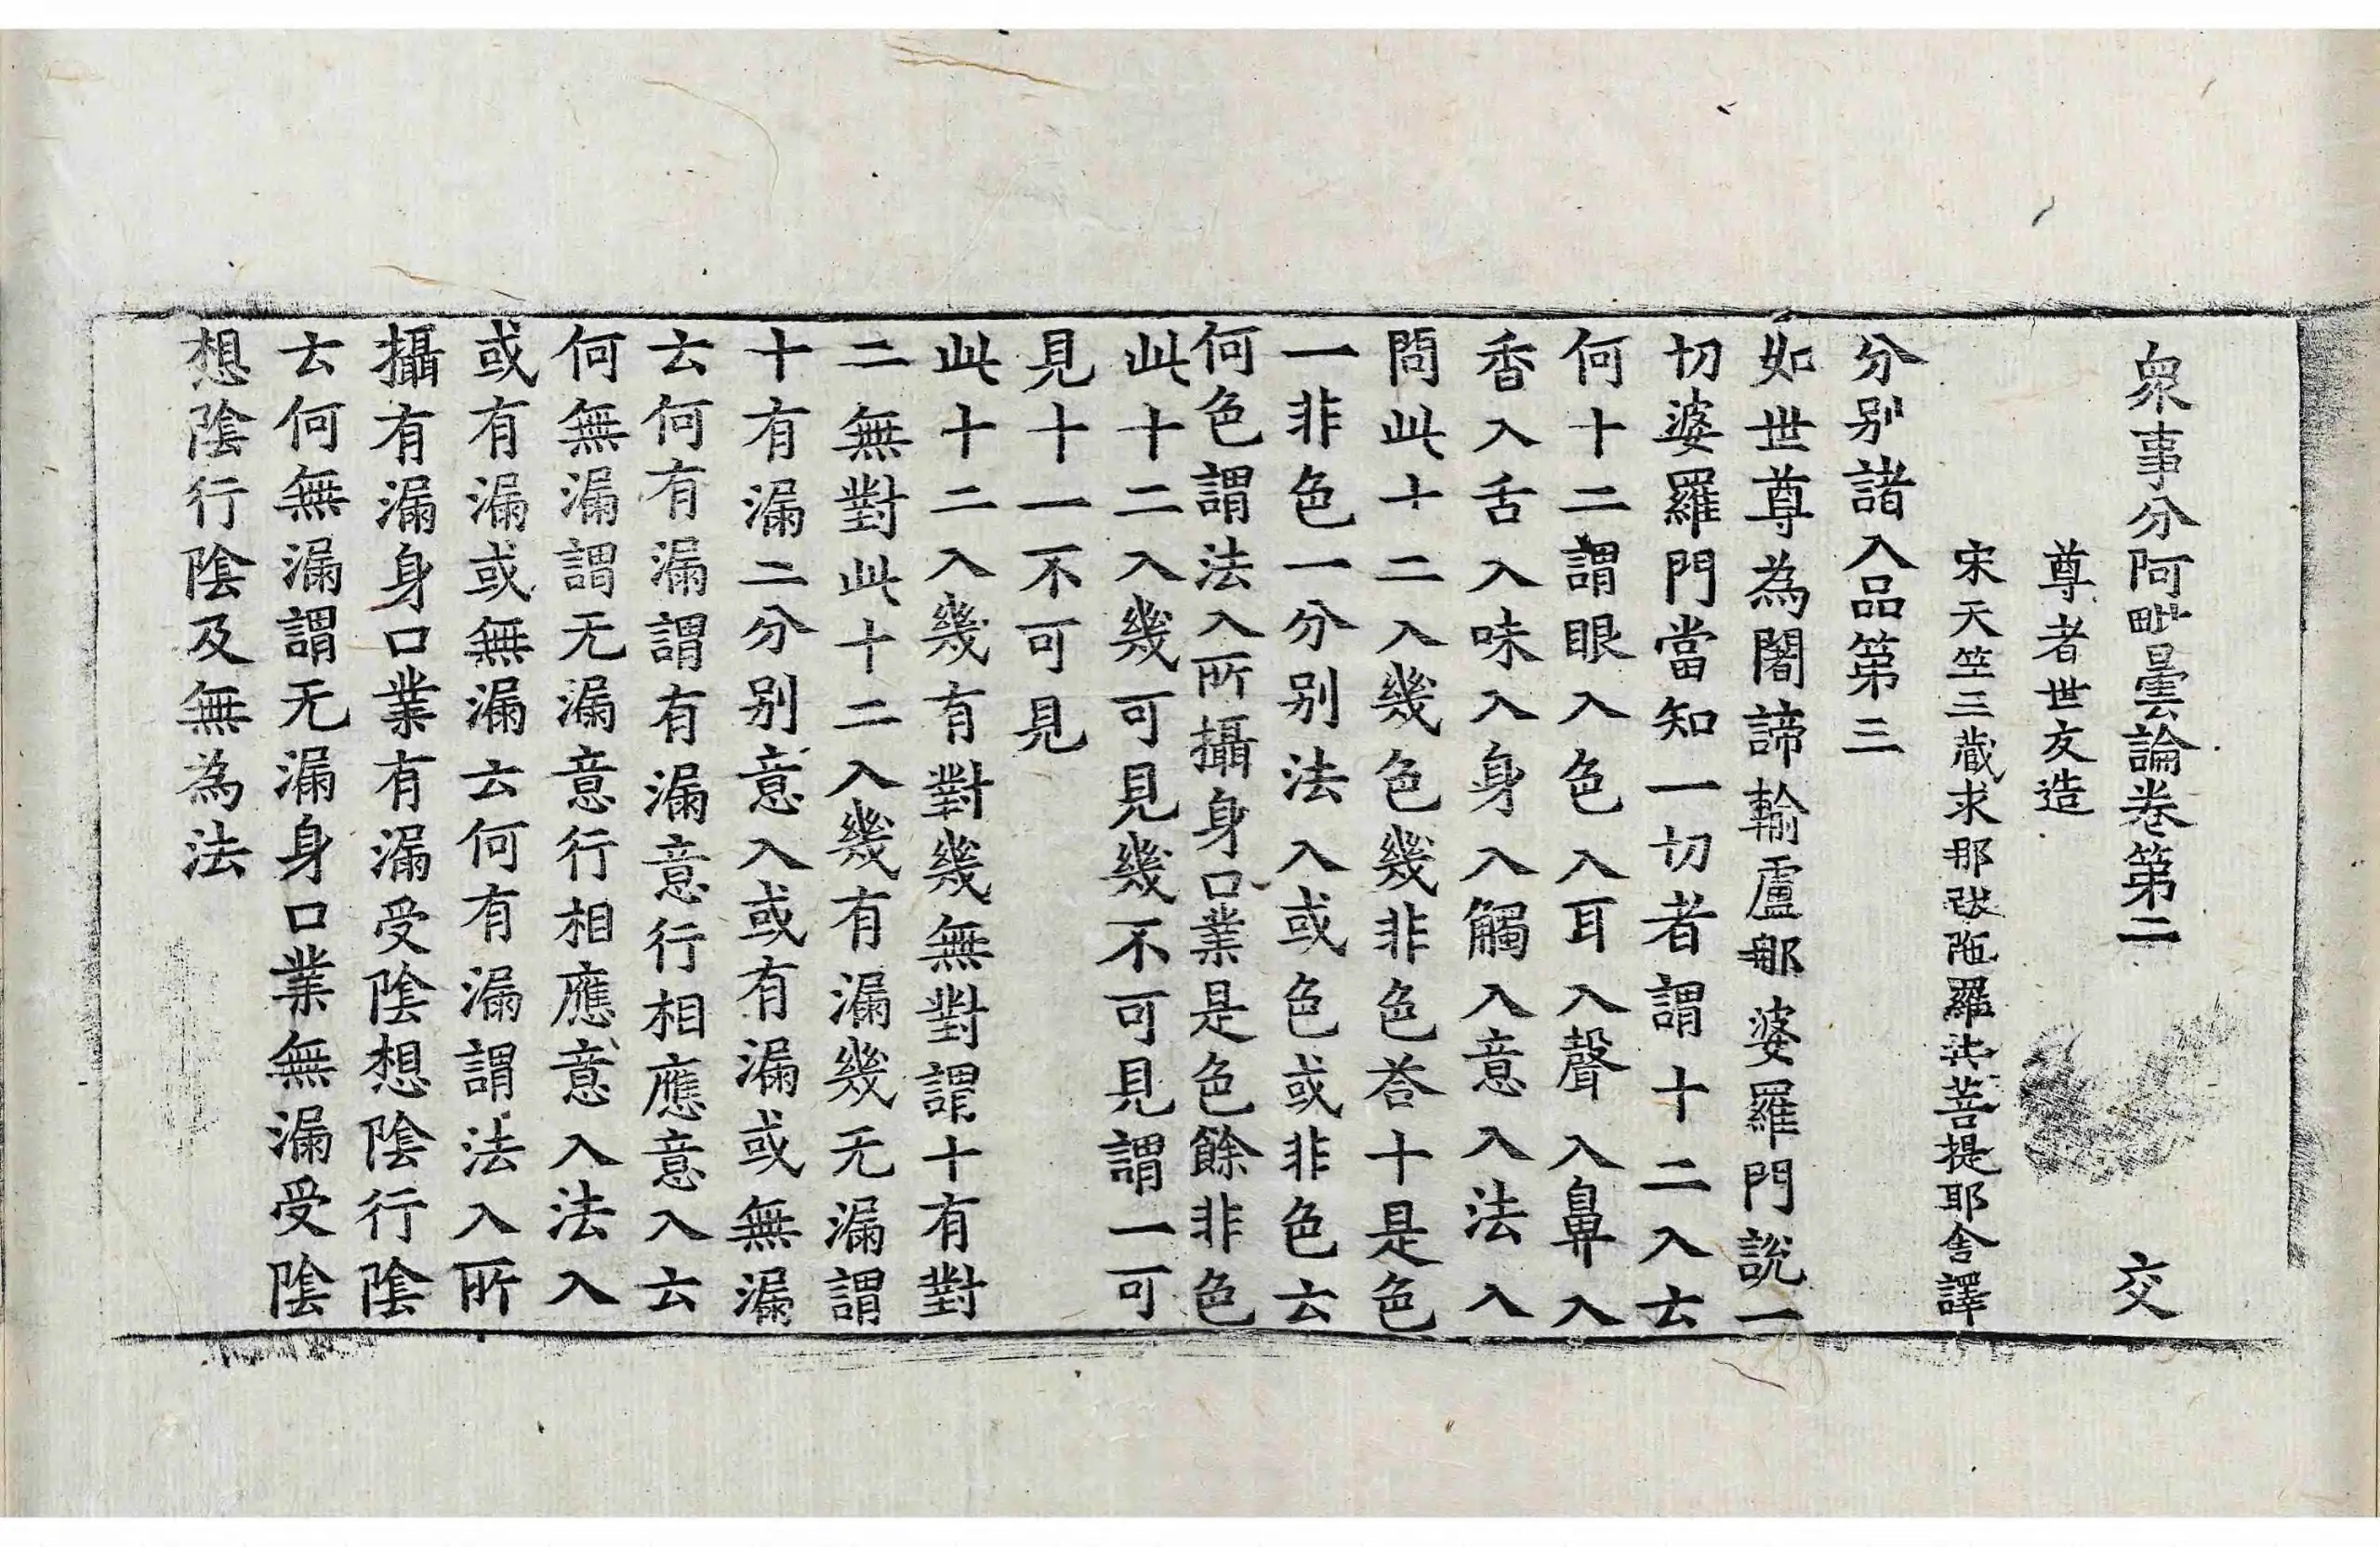 衆事分阿毗曇論卷第二　交
尊者世友造
宋天竺三藏求那跋陁羅共菩提耶舍譯
分別諸入品第三
如世尊為闍諦輸盧那婆羅門說一
切婆羅門當知一切者謂十二入云
何十二謂眼入色入耳入聲入鼻入
香入舌入味入身入觸入意入法入
問此十二入幾色幾非色荅十是色
一非色一分別法入或色或非色云
何色謂法入所攝身口業是色餘非色
此十二入幾可見幾不可見謂一可
見十一不可見
此十二入幾有對幾無對謂十有對
二無對此十二入幾有漏幾无漏謂
十有漏二分別意入或有漏或無漏
云何有漏謂有漏意行相應意入云
何無漏謂无漏意行相應意入法入
或有漏或無漏云何有漏謂法入所
攝有漏身口業有漏受陰想陰行陰
云何無漏謂无漏身口業無漏受陰
想陰行陰及無為法